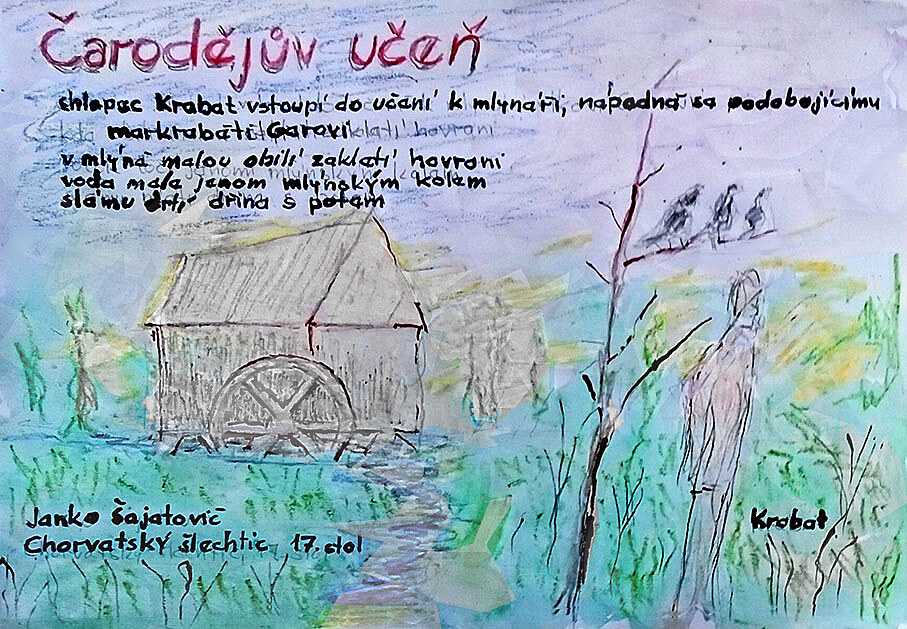 Čarodějův učeň
chlapec Krabat vstoupí do učení k mlynáři, nápadně se podobajícímu
markraběti Gerovi
v mlýně melou obilí zakletí havrani
voda mele jenom mlýnským kolem
slámu drtí dřina s potem
Janko Šajatovič
Chorvatský šlechtic 17. stol
Krabat